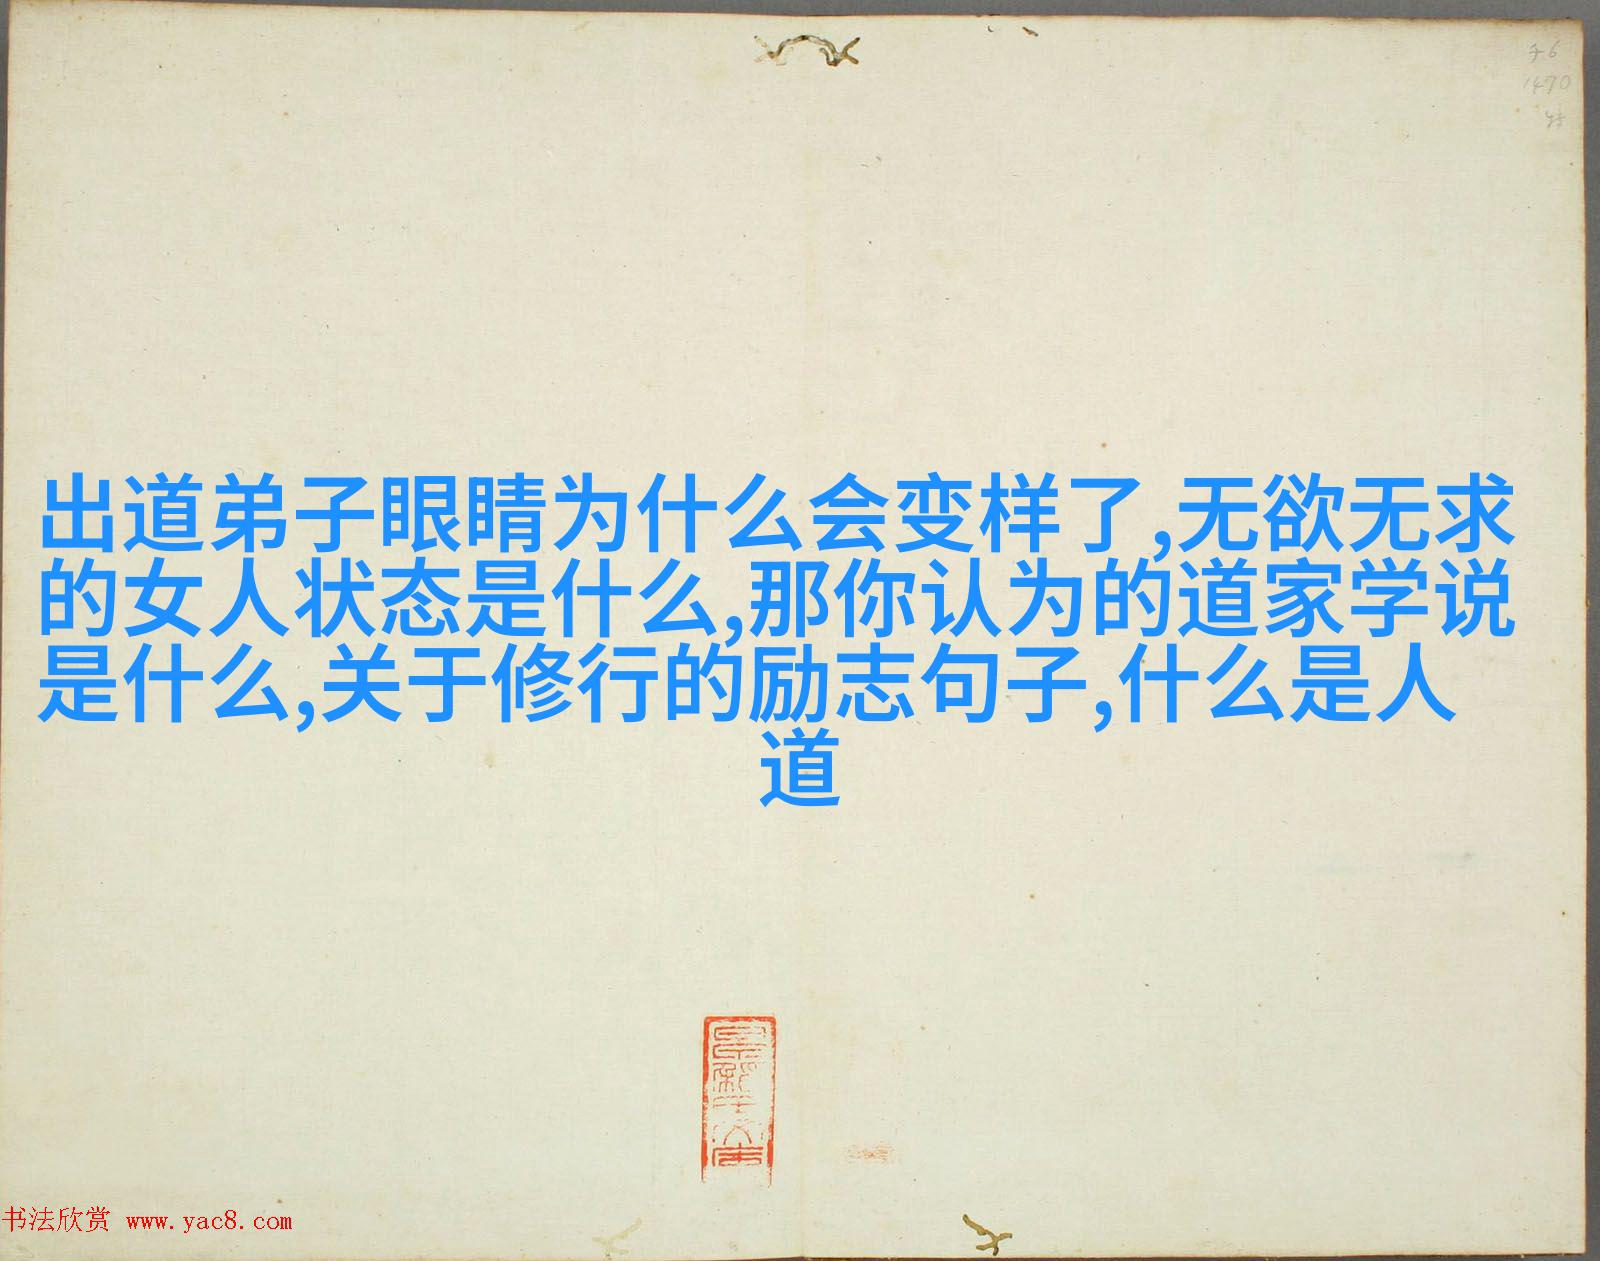 出道弟子眼睛为什么会变样了,无欲无求
的女人状态是什么,那你认为的道家学说
是什么,关于修行的励志句子,什么是人
道
书法欣赏 www.yac8.com
1470